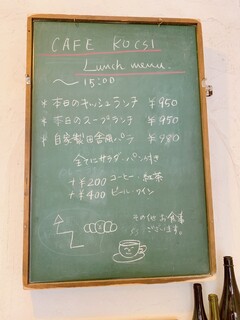 CAFE KOCSI
Lunch menu.
〜15:00
* 本日のキッシュランチ ¥950
* 本日のスープランチ ¥950
* 自家製田舎風パテ ¥980
全てにサラダ・パン付き
+¥200 コーヒー・紅茶
+¥400 ビール・ワイン
その他 お食事
ございます。